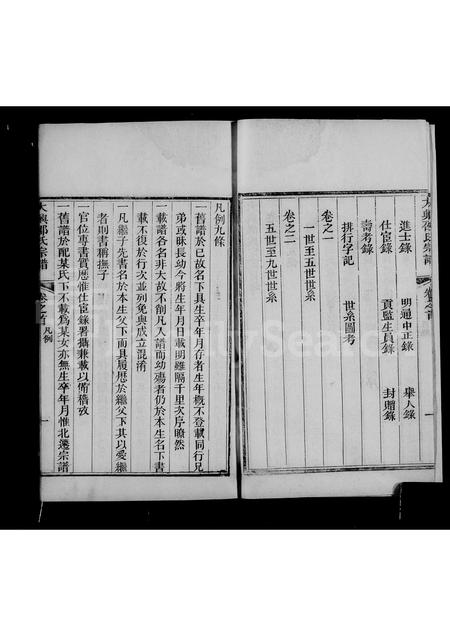 大興邵氏宗譜 卷之首 一
進士錄 明通中正錄 舉人錄
仕宦錄 貢監生員錄 封贈錄
壽考錄
排行字記 世系圖考
卷之一
一世至五世世系
卷之二
五世至九世世系
凡例九條
一舊譜於已故名下具生卒年月存者生年概不登載同行兄
弟或昧長幼今將生年月日載明雖隔千里次序瞭然
一載譜各名非大故不削凡入譜而幼殤者仍於本生名下書
載不復於行次並列免與成立混淆
一凡繼子先書名於本生父下而具履歷於繼父下其以愛繼
者則書稱撫子
一官位專書實歷惟仕宦錄署攝兼載以備稽攷
一舊譜於配某氏下不載為某女亦無生卒年月惟北遷宗譜
大興邵氏宗譜 卷之首 凡例 一